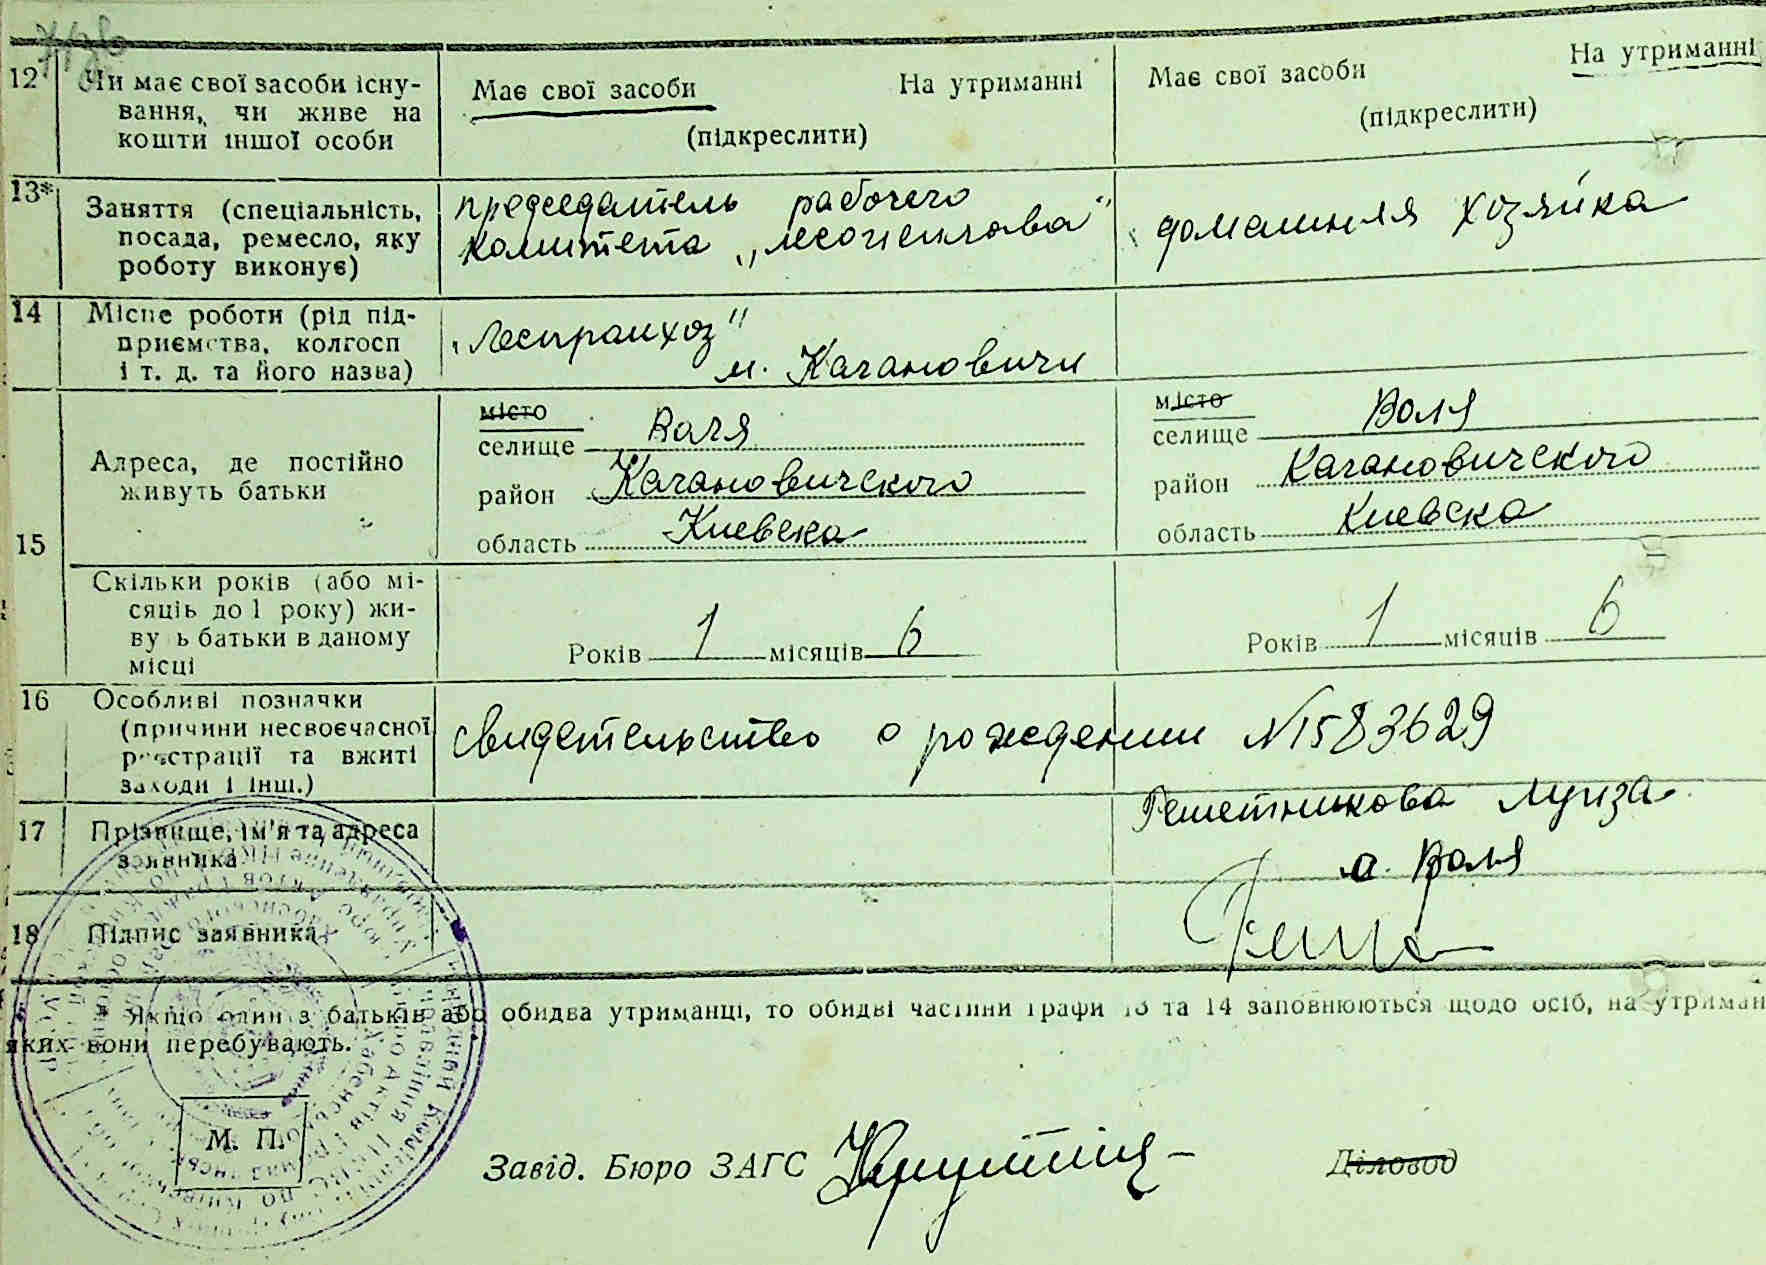 12 Чи має свої засоби існу-
вання, чи живе на
кошти іншої особи
Має свої засоби На утриманні
(підкреслити)
Має свої засоби На утриманні
(підкреслити)
13* Заняття (спеціальність,
посада, ремесло, яку
роботу виконує)
председатель рабочего
комитета
домашняя хозяйка
14 Місце роботи (рід під-
приємства, колгосп
і т. д. та його назва)
„Леспромхоз"
м. Кагановичи
15 Адреса, де постійно
живуть батьки
місто
селище Воля
район Кагановичского
область Киевска
місто
селище Воля
район Кагановичского
область Киевска
Скільки років (або мі-
сяців до 1 року) жи-
ву ь батьки в даному
місці
Років 1 місяців 6
Років 1 місяців 6
16 Особливі позначки
(причини несвоєчасної
реєстрації та вжиті
заходи і інш.)
свидетельство о рождении №1583629
17 Прізвище, ім'я та адреса
заявника
Решетникова Луиза
с. Воля
18 Підпис заявника
Реше
* Якщо один з батьків або обидва утриманці, то обидві частини графи 13 та 14 заповнюються щодо осіб, на утриман
яких вони перебувають.
М. П.
Завід. Бюро ЗАГС
Діловод